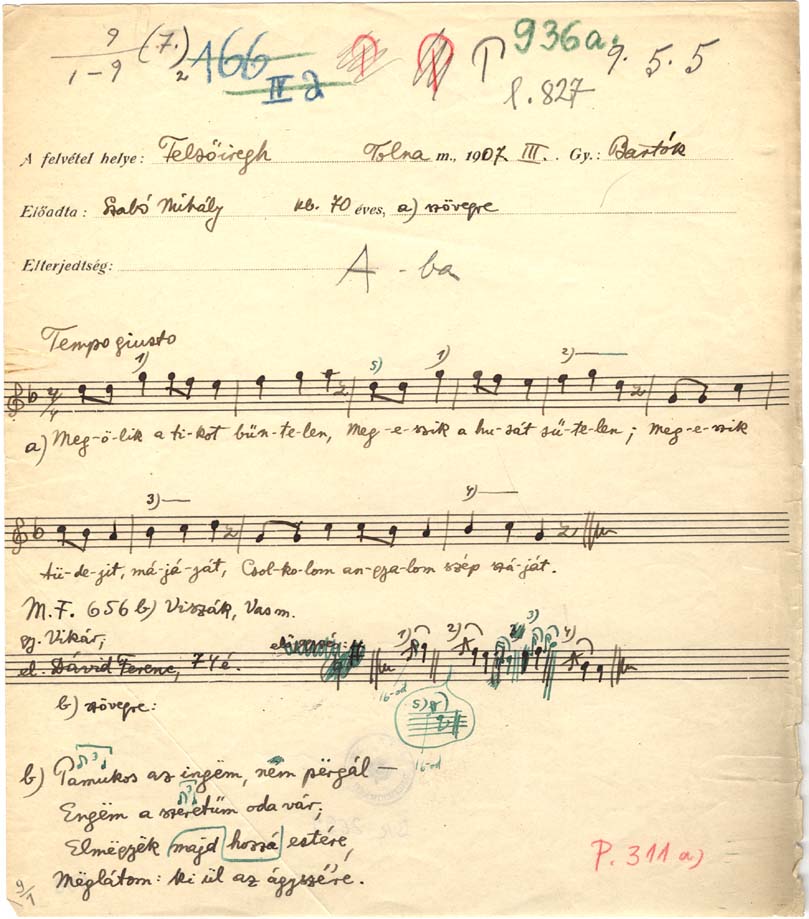 9 (7.) 166 936a. 9. 5. 5
1-9 2 IV a P. 827
A felvétel helye: Felsőiregh Tolna m., 1907 III. Gy.: Bartók
Előadta: Szabó Mihály kb. 70 éves, a) szövegre
Elterjedtség:
A - ba
Tempo giusto
5) 1) 1) 2)
2/4
a) Meg-ö-lik a ti-kot bün-te-len, Meg-e-szik a hu-sát sü-te-len; Meg-e-szik
3) 4)
tü-de-jit, má-já-ját, Csol-ko-lom an-gya-lom szép szá-ját.
M.F. 656 b) Viszák, Vas m.
gy. Vikár;
1) 2) 3) 4)
el. Dávid Ferenc, 74 é.
16-od
b) szövegre:
5)
16-od
b) Pamukos az ingëm, nëm përgál —
Engëm a szeretüm oda vár;
Elmëgyëk majd hozzá estére,
P. 311 a)
Mëglátom: ki ül az ágyszére.
9/1